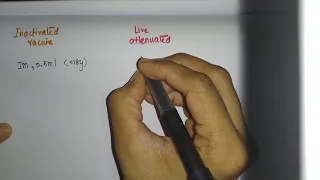 Inactivated
vaccine
Live
attenuated
IM, 0.5ml